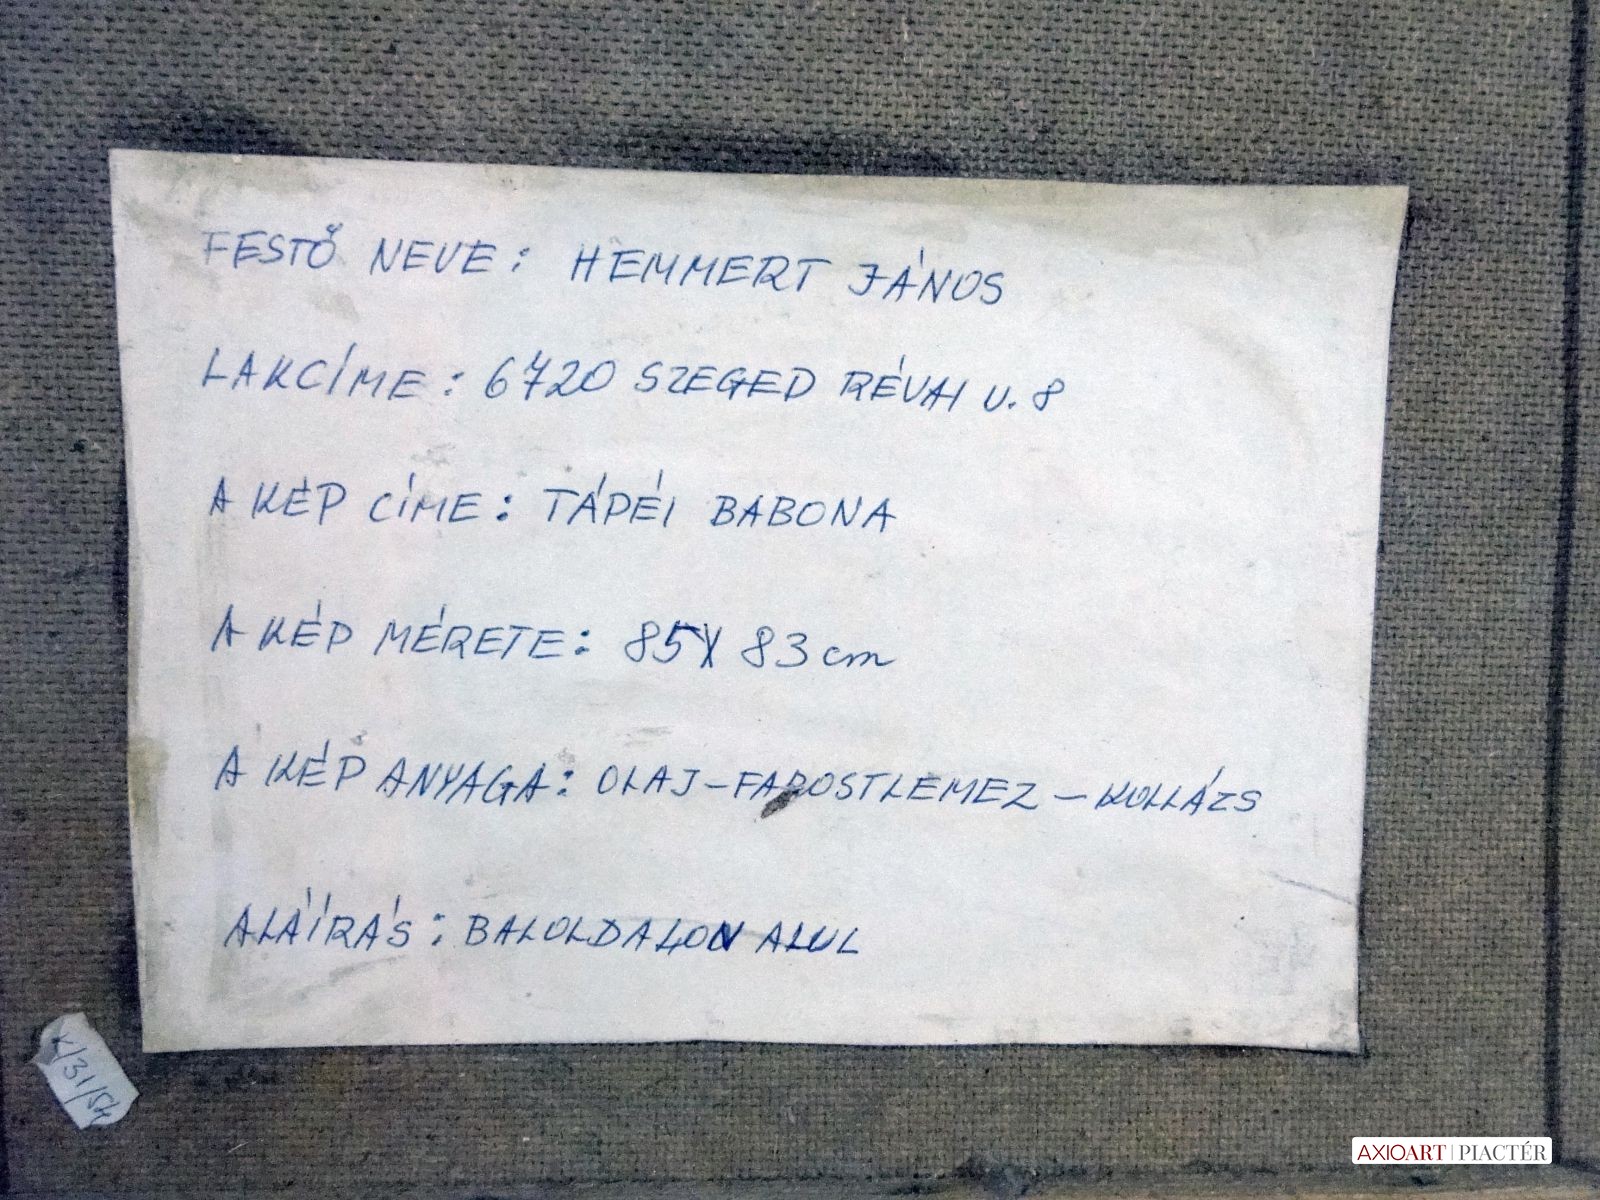 FESTŐ NEVE: HEMMERT JÁNOS
LAKCÍME: 6720 SZEGED RÉVAI U. 8
A KÉP CÍME: TÁPÉI BABONA
A KÉP MÉRETE: 85X83 cm
A KÉP ANYAGA: OLAJ-FAROSTLEMEZ-KOLLÁZS
ALÁÍRÁS: BALOLDALON ALUL
K/31/54
AXIOART | PIACTÉR